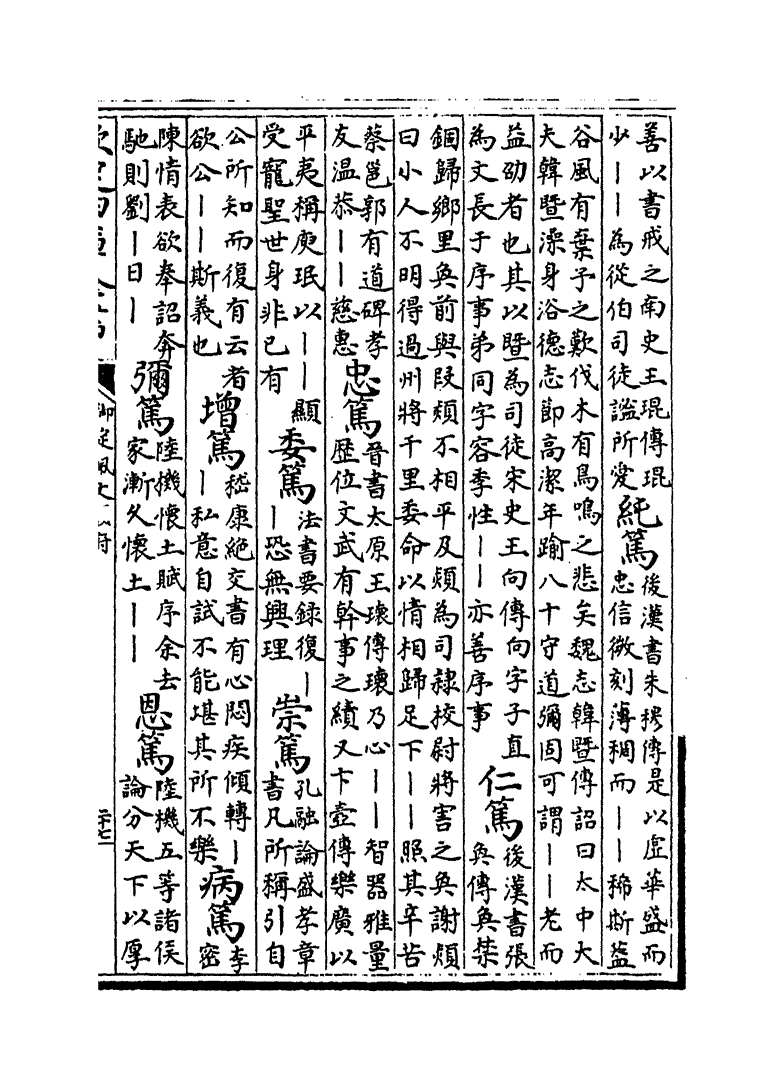 善以書戒之南史王琨傳琨
少丨丨為從伯司徒謐所愛
純篤
後漢書朱穆傳是以虛華盛而
忠信微刻薄稠而丨丨稀斯蓋
谷風有棄予之歎伐木有鳥鳴之悲矣魏志韓暨傳詔曰太中大
夫韓暨澡身浴德志節高潔年踰八十守道彌固可謂丨丨老而
益劭者也其以暨為司徒宋史王向傳向字子直
為文長于序事弟同字容季性丨丨亦善序事
仁篤
後漢書張
奐傳奐禁
錮歸鄉里奐前與段熲不相平及熲為司隸校尉將害之奐謝熲
曰小人不明得過州將千里委命以情相歸足下丨丨照其辛苦
蔡邕郭有道碑孝
友温恭丨丨慈惠
忠篤
晉書太原王瓌傳瓌乃心丨丨智器雅量
歴位文武有幹事之績又卞壺傳樂廣以
平夷稱庾珉以丨丨顯
受寵聖世身非已有
委篤
法書要録復丨
丨恐無興理
崇篤
孔融論盛孝章
書凡所稱引自
公所知而復有云者
欲公丨丨斯義也
增篤
嵇康絶交書有心悶疾傾轉丨
丨私意自試不能堪其所不樂
病篤
李
密
陳情表欲奉詔奔
馳則劉丨日丨
彌篤
陸機懷土賦序余去
家漸久懷土丨丨
恩篤
陸機五等諸侯
論分天下以厚